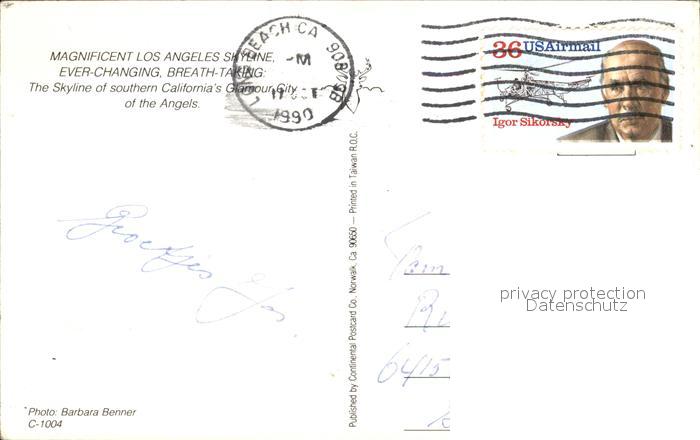 MAGNIFICENT LOS ANGELES SKYLINE,
EVER-CHANGING, BREATH-TAKING:
The Skyline of southern California's Glamour City
of the Angels.
LONG BEACH CA 908
M
1990
36 USAirmail
Igor Sikorsky
Published by Continental Postcard Co., Norwalk, Ca. 90650 — Printed in Taiwan R.O.C.
Groetjes
Fam
6415
privacy protection
Datenschutz
Photo: Barbara Benner
C-1004